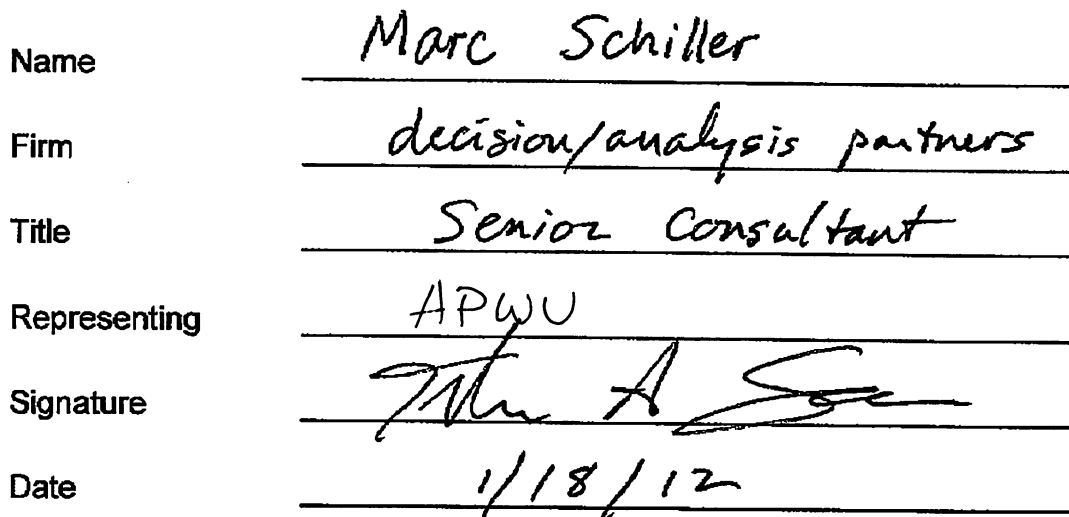 Name Marc Schiller
Firm decision/analysis partners
Title Senior Consultant
Representing APWU
Signature A
Date 1/18/12